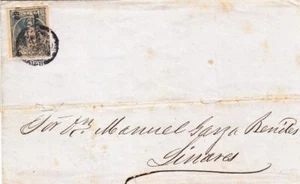 Sor Dn. Manuel Garza Benites
Linares